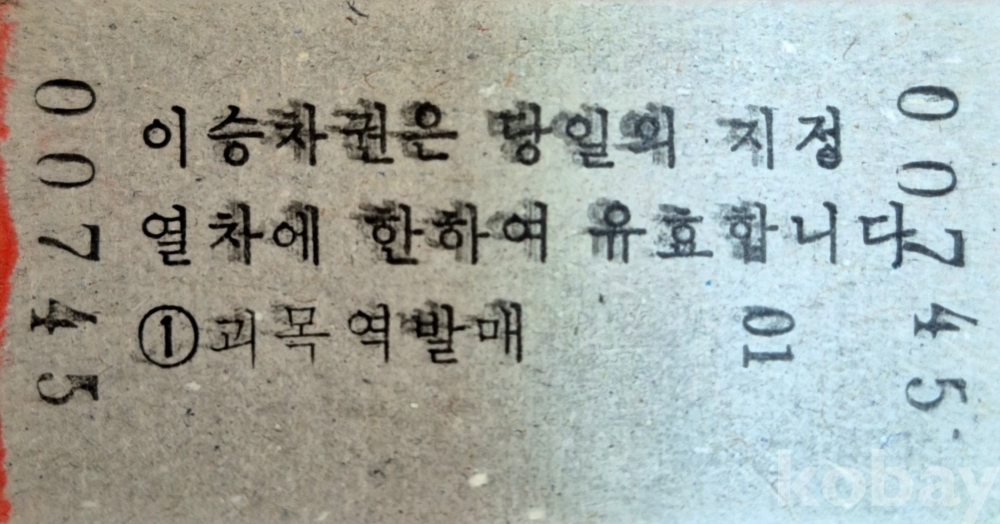 00745
이승차권은 당일의 지정
열차에 한하여 유효합니다
①괴목역발매 01
00745
kobay